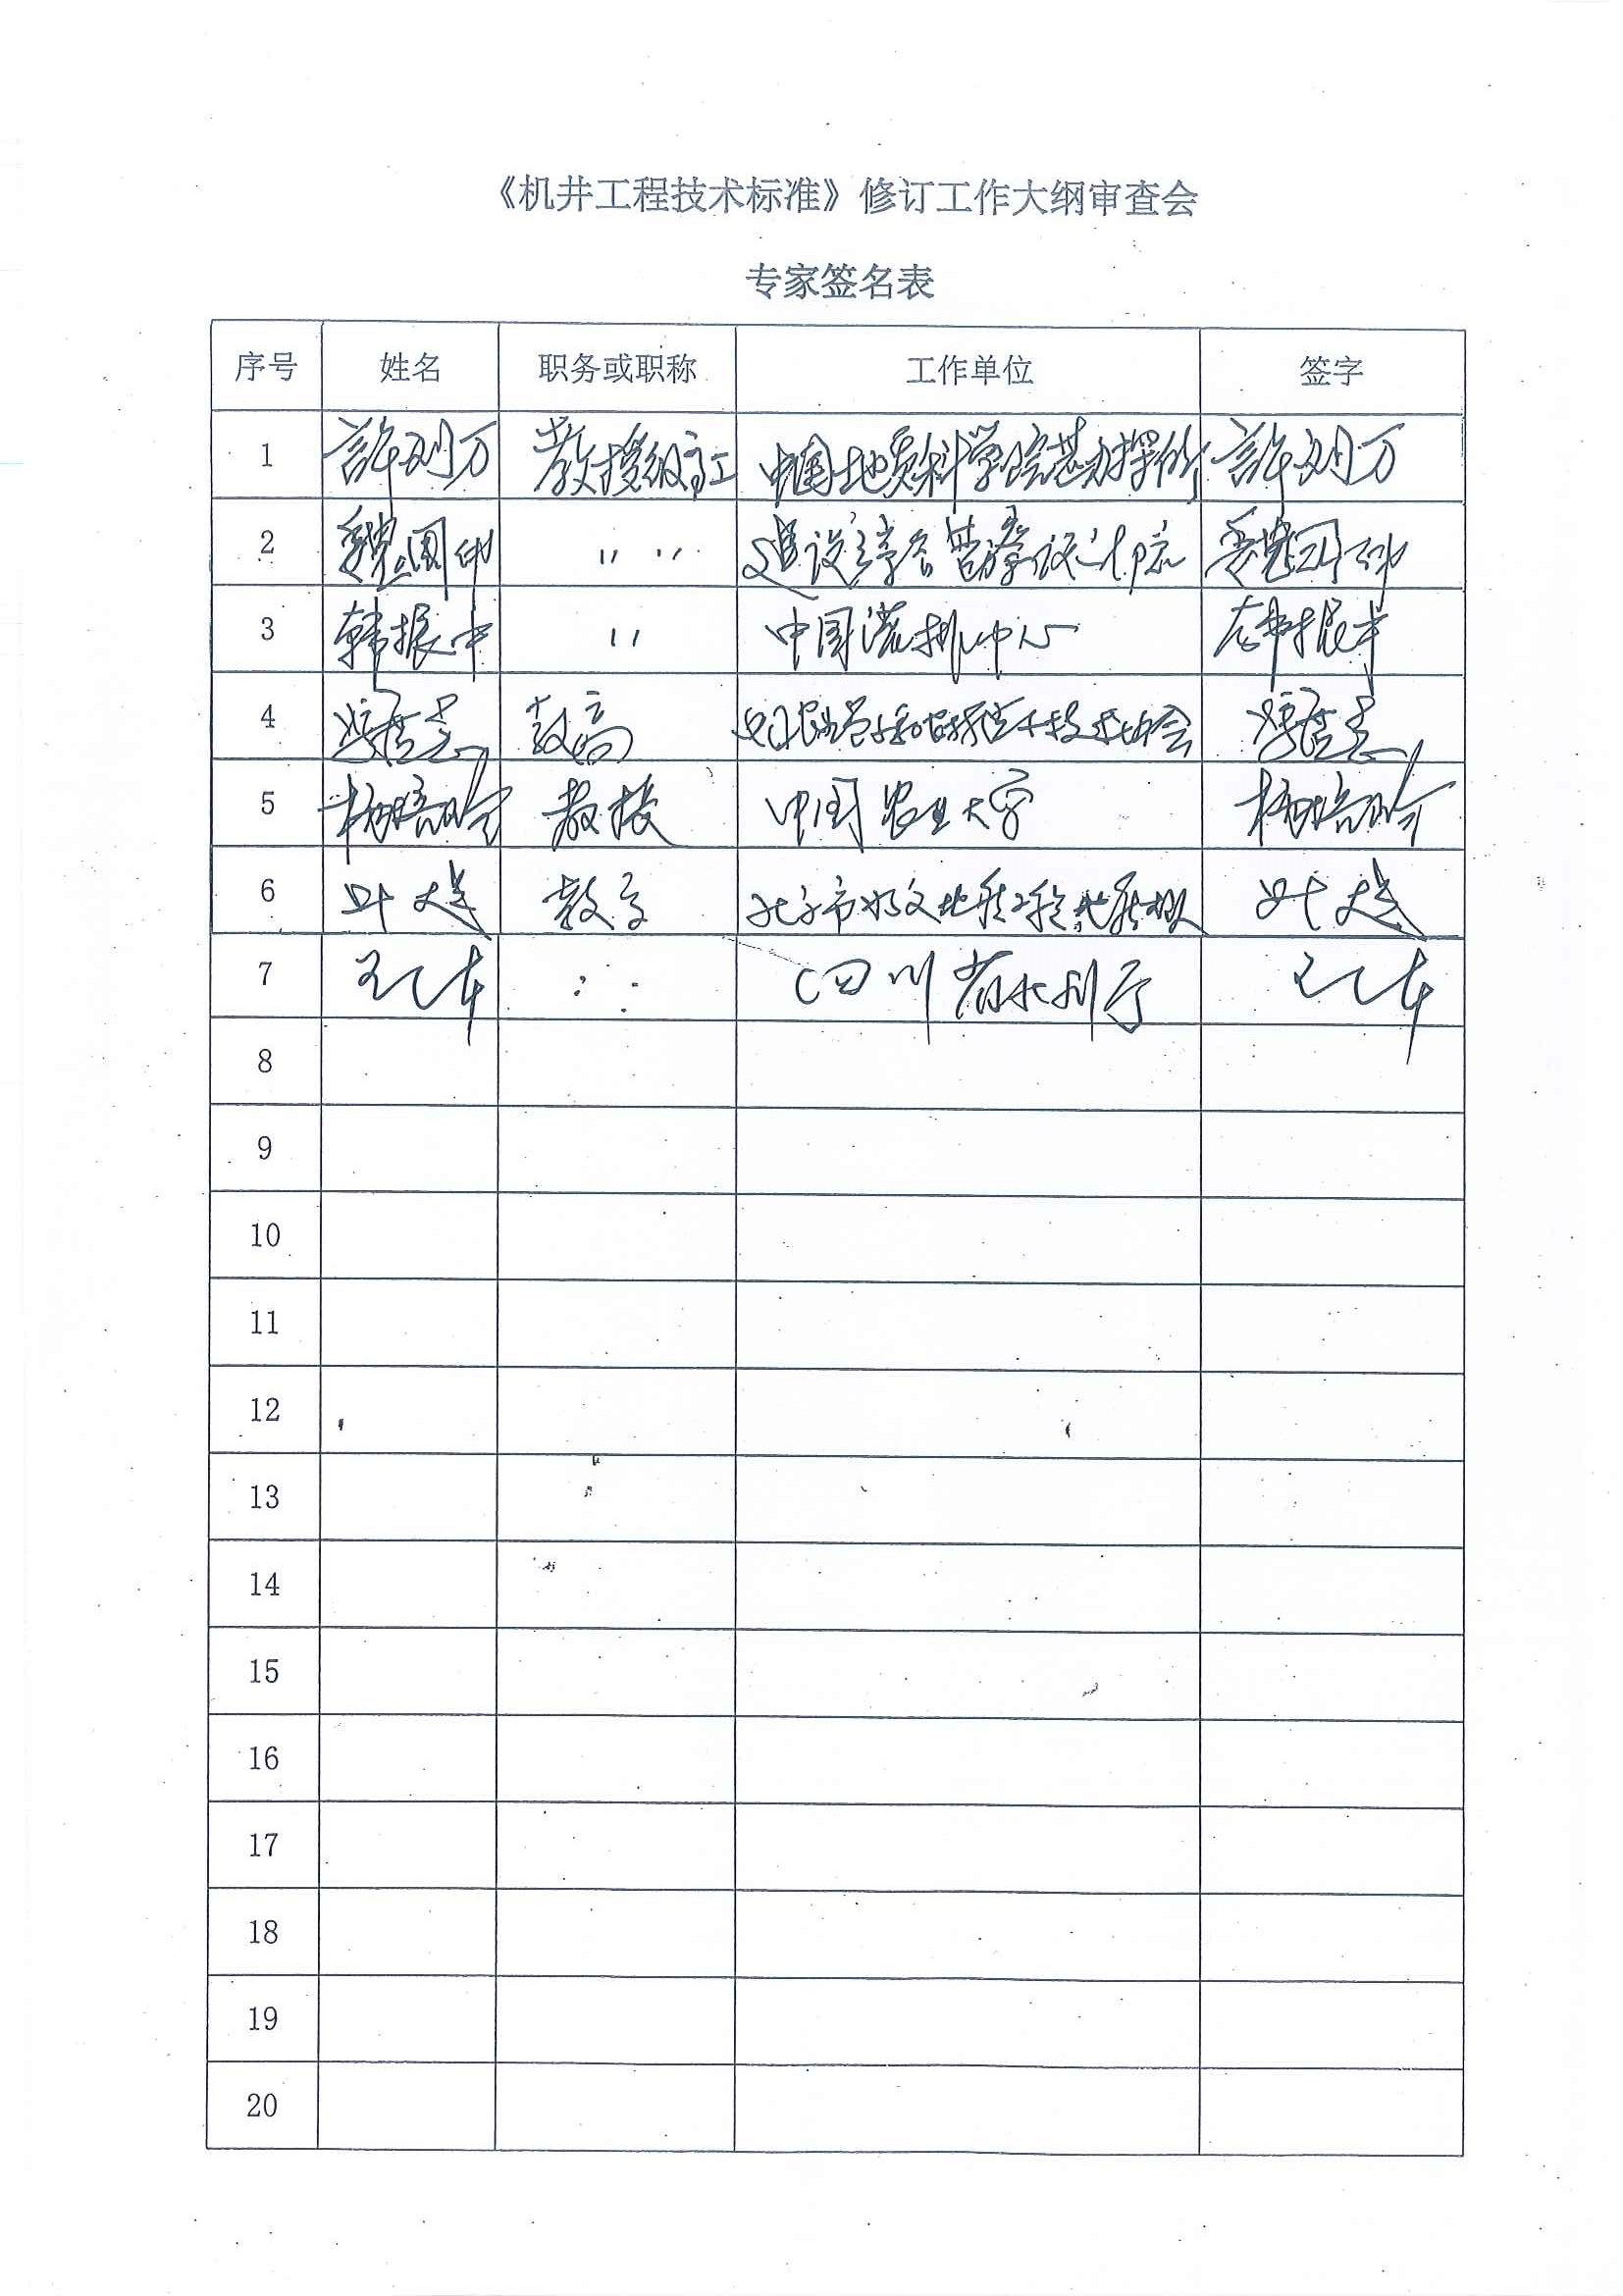 《机井工程技术标准》修订工作大纲审查会
专家签名表
序号 姓名 职务或职称 工作单位 签字
1 許刘万 教授级高工 中国地质科学院勘探所 許刘万
2 魏国印 〃 〃 建设综合勘察设计院 魏国印
3 韩振中 〃 中国灌排中心 韩振中
4 教高
5 杨培岭 教授 中国农业大学 杨培岭
6 叶超 教高 北京市水文地质工程地质大队 叶超
7 四川省水利厅
8
9
10
11
12
13
14
15
16
17
18
19
20